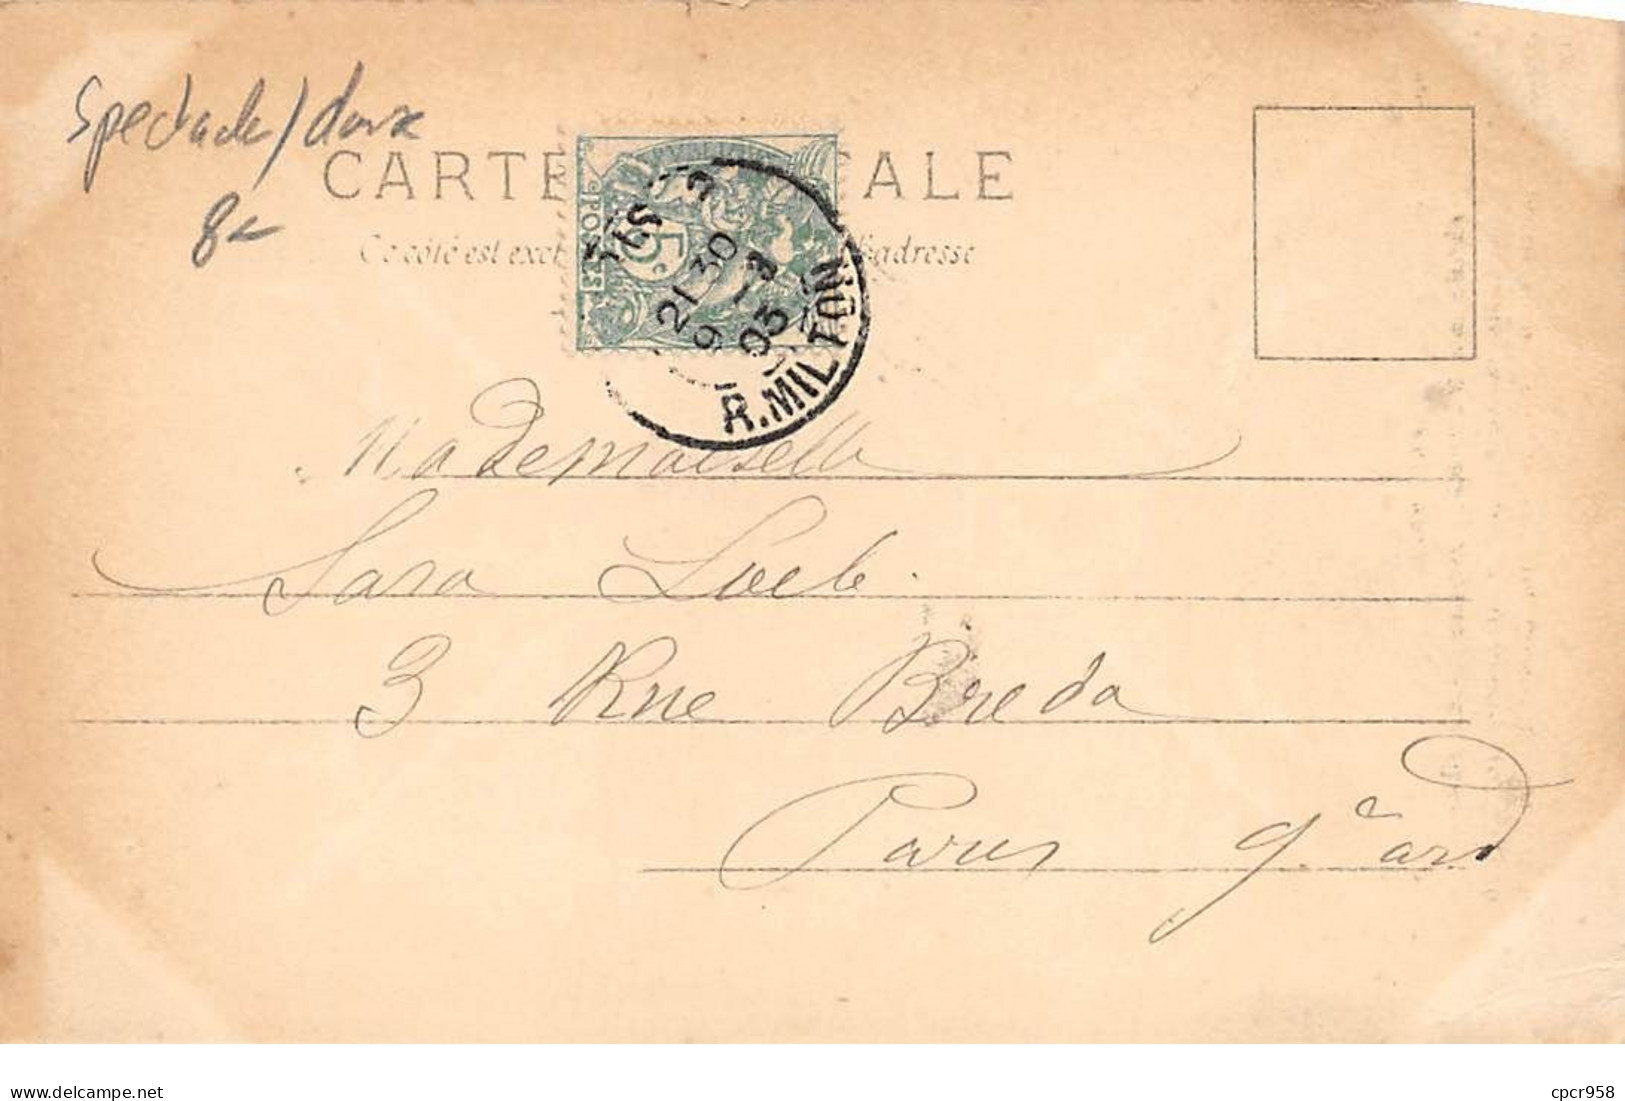 Spectacle/danse
8€
CARTE ALE
Ce côté est excl l'adresse
POSTES
5
PARIS 3
21 30
9 - 2
03
R. MILTON
Mademoiselle
Sara Loeb.
3 Rue Breda
Paris 9.e ard
delcampe.net
cpcr958